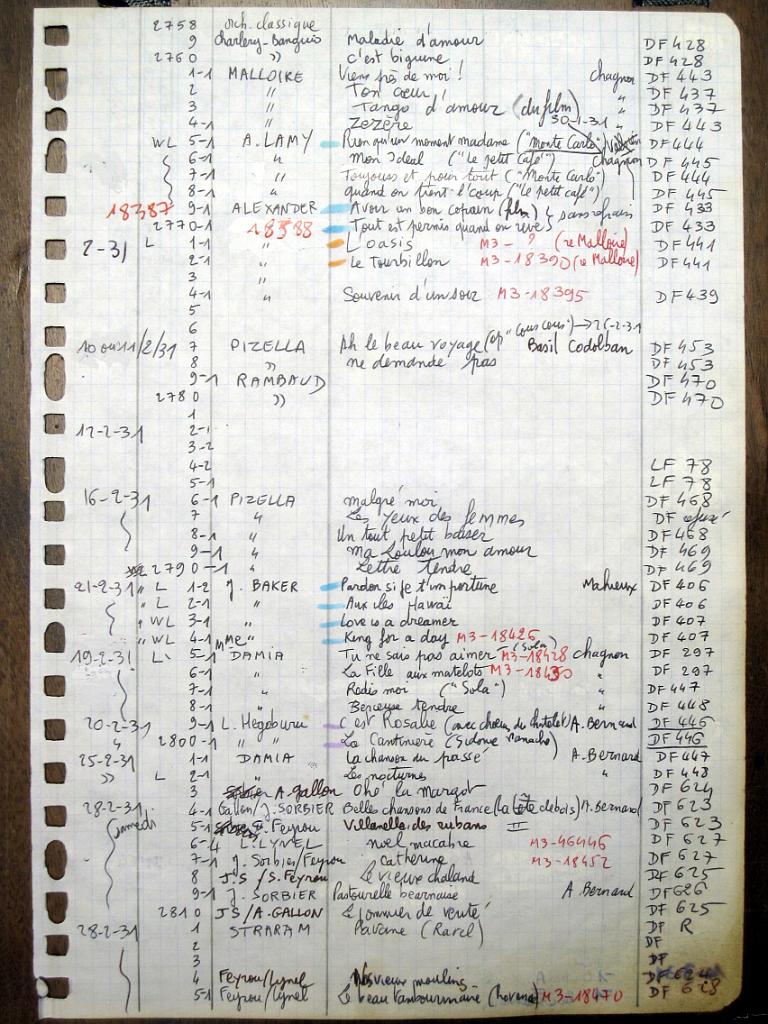 2758 orch. classique
9 charlery-Banguio Maladie d'amour DF 428
2760 " c'est biguine DF 428
1-1 MALLOIRE Viens près de moi! chagnon DF 443
2 " Ton cœur! " DF 437
3 " Tango d'amour (du film) " DF 437
4-1 " Zézère 30-1-31 " DF 443
WL 5-1 A. LAMY Rien qu'un moment madame ("Monte Carlo") DF 444
6-1 " Mon Ideal ("Le petit Café") chagnon DF 445
7-1 " Toujours et pour tout ("Monte Carlo") DF 444
8-1 " quand on tient l'coup ("Le petit café") DF 445
18387 9-1 ALEXANDER Avoir un bon copain (film) sans refrain DF 433
2770-1 18388 Tout est permis quand on rêve DF 433
2-31 L 1-1 " L'oasis M3- ? (re Malloire) DF 441
2-1 " Le Tourbillon M3-18390 (re Malloire) DF 441
3 "
4-1 " Souvenir d'un soir M3-18395 DF 439
5
6
10 ou 11/2/31 7 PIZELLA Ah le beau voyage (op "Cous cous") → 26-2-31 Basil Codolban DF 453
8 " ne demande pas DF 453
9-1 RAMBAUD DF 470
2780 " DF 470
1
12-2-31 2-1
3-2
4-2 LF 78
5-1 LF 78
16-2-31 6-1 PIZELLA malgré moi DF 468
7 " Les yeux des femmes DF refusé
8-1 " Un tout petit baiser DF 468
9-1 " Ma Loulou mon amour DF 469
2790-1 " Lettre tendre DF 469
21-2-31 " L 1-2 J. BAKER Pardon si je t'importune Mahieux DF 406
" L 2-1 " Aux iles Hawaï DF 406
" WL 3-1 " Love is a dreamer DF 407
" WL 4-1 " King for a day M3-18426 DF 407
19-2-31 L 5-1 Mme DAMIA Tu ne sais pas aimer (Sola) M3-18428 chagnon DF 297
6-1 " La Fille aux matelots M3-18430 " DF 297
7-1 " Redis moi ("Sola") " DF 447
8-1 " Berceuse tendre " DF 448
20-2-31 9-1 L. Hégoburu C'est Rosalie (avec chœur du chatelet) A. Bernard DF 446
" 2800-1 " " La Cantinière (Sidonie Panache) DF 446
25-2-31 1-1 DAMIA La chanson du passé A. Bernard DF 447
" L 2-1 " Les nocturnes " DF 448
3 A. gallon Ohé la margot DF 624
28-2-31 4-1 Gallon/J. SORBIER Belles chansons de France (la tête de bois) A. Bernard DF 623
samedi 5-1 S. Feyrou Villanelle des rubans DF 623
6-4 L. LYNEL noel macabre M3-46446 DF 627
7-1 J. Sorbier/Feyrou Catherine M3-18452 DF 627
8 J.S /S. Feyrou Le vieux chaland DF 625
9-1 J. SORBIER Pastourelle bearnaise A. Bernard DF 626
2810 JS/A. GALLON DF 625
28-2-31 1 STRARAM Pavane (Ravel) DF R
2 DF
3 DF
4 Feyrou/Lynel Nos vieux moulins DF
5-1 Feyrou/Lynel Le beau tambourinaire M3-18470 DF 628